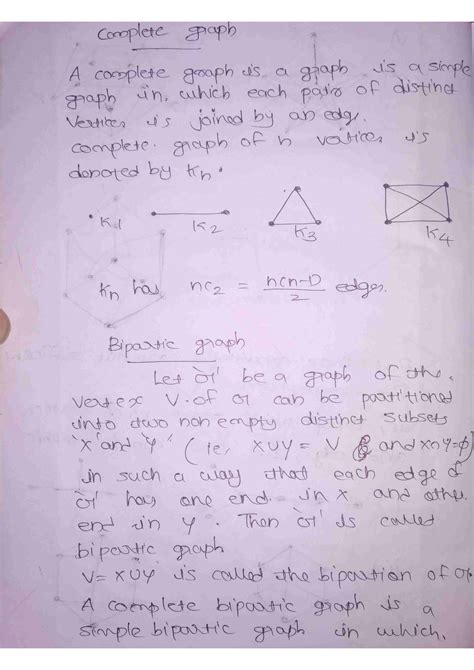 Complete graph
A complete graph is a graph is a simple
graph in, which each pair of distinct
Vertices is joined by an edge.
complete graph of n vertices is
denoted by Kn.
K1 K2 K3 K4
Kn has nC2 = n(n-1)/2 edges.
Bipartic graph
Let 'G' be a graph of the
vertex V of G can be partitioned
into two non empty distinct subsets
'X' and 'Y' (ie, X∪Y = V and X∩Y=ϕ)
in such a way that each edge of
'G' has one end in X and other
end in Y. Then 'G' is called
bipartic graph
V= X∪Y is called the bipartion of G.
A complete bipartic graph is a
simple bipartic graph in which,